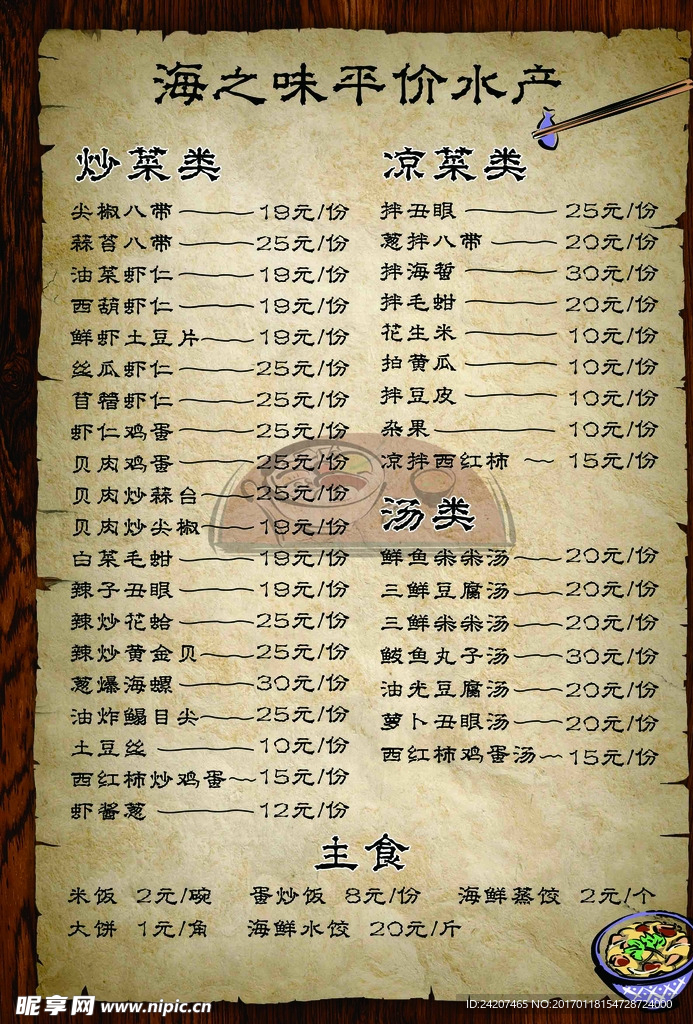 海之味平价水产
炒菜类
尖椒八带 19元/份
蒜苔八带 25元/份
油菜虾仁 19元/份
西葫虾仁 19元/份
鲜虾土豆片 19元/份
丝瓜虾仁 25元/份
苜蓿虾仁 25元/份
虾仁鸡蛋 25元/份
贝肉鸡蛋 25元/份
贝肉炒蒜台 25元/份
贝肉炒尖椒 19元/份
白菜毛蚶 19元/份
辣子丑眼 19元/份
辣炒花蛤 25元/份
辣炒黄金贝 25元/份
葱爆海螺 30元/份
油炸鳎目尖 25元/份
土豆丝 10元/份
西红柿炒鸡蛋 15元/份
虾酱葱 12元/份
凉菜类
拌丑眼 25元/份
葱拌八带 20元/份
拌海蜇 30元/份
拌毛蚶 20元/份
花生米 10元/份
拍黄瓜 10元/份
拌豆皮 10元/份
杂果 10元/份
凉拌西红柿 15元/份
汤类
鲜鱼汤 20元/份
三鲜豆腐汤 20元/份
三鲜汤 20元/份
鲅鱼丸子汤 30元/份
油光豆腐汤 20元/份
萝卜丑眼汤 20元/份
西红柿鸡蛋汤 15元/份
主食
米饭 2元/碗 蛋炒饭 8元/份 海鲜蒸饺 2元/个
大饼 1元/角 海鲜水饺 20元/斤
昵享网 www.nipic.cn
ID:24207465 NO:20170118154728724000